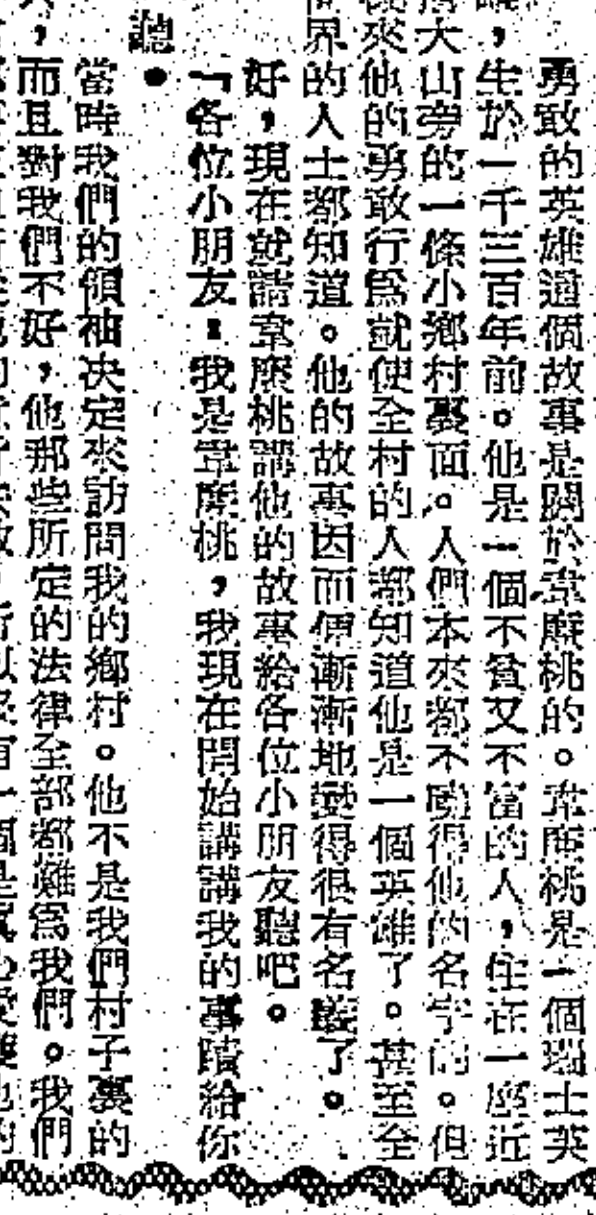 勇敢的英雄這個故事是關於韋麽桃的。韋麽桃是一個瑞士英
雄,生於一千三百年前。他是一個不貧又不富的人,住在一座近
著大山旁的一條小鄉村裏面。人們本來都不曉得他的名字的。但
後來他的勇敢行爲就使全村的人都知道他是一個英雄了。甚至全
世界的人士都知道。他的故事因而便漸漸地變得很有名譽了。
好,現在就請韋麽桃講他的故事給各位小朋友聽吧。
「各位小朋友:我是韋麽桃,我現在開始講講我的事蹟給你
聽。
當時我們的領袖决定來訪問我的鄉村。他不是我們村子裏的
人,而且對我們不好,他那些所定的法律全部都難爲我們。我們